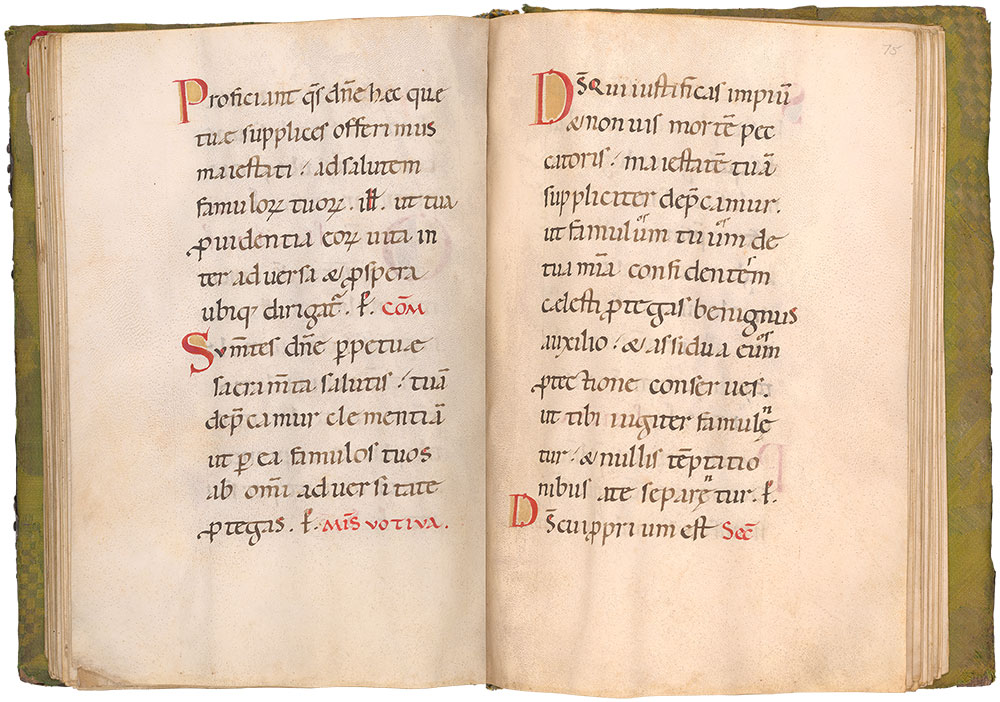 Proficiant q̄s dn̄e hec que
tuę supplices offerimus
maiestati · ad salutem
famuloꝝ tuoꝝ . ill . ut tua
ꝓuidentia eoꝝ uita in
ter aduersa & ꝓspera
ubiq; dirigat᷑ . ꝑ . cōm
Sum̄tes dn̄e ꝑpetuę
sacram̄ta salutis · tuā
dep̄camur clementiā
ut ꝑ ea famulos tuos
ab om̄i aduersitate
ꝓtegas . ꝑ . Mis̄ votiva .
75
D̄s Qui iustificas impiū
& non uis mortē pec
catoris · maiestatē tuā
suppliciter dep̄camur .
ut famulūm os tuūm os de
tua mīa confidentēm s
cęlesti ꝓtegas benignus
auxilio · & assidua eūm os
ꝓtectione conserues .
ut tibi iugiter famulet n
tur · & nullis tēptatio
nibus a te separet n tur . ꝑ .
D̄s cui ꝓprium est Sec̄